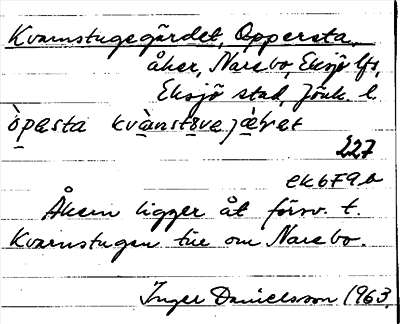 Kvarnstugegärdet, Oppersta.
åker, Narebo, Eksjö lfs,
Eksjö stad, Jönk. l.
òpesta kvànstove jæ̀ret
227
ek679b
Åkern ligger åt försv. t.
Kvarnstugan till om Narebo.
Inger Danielsson 1963.